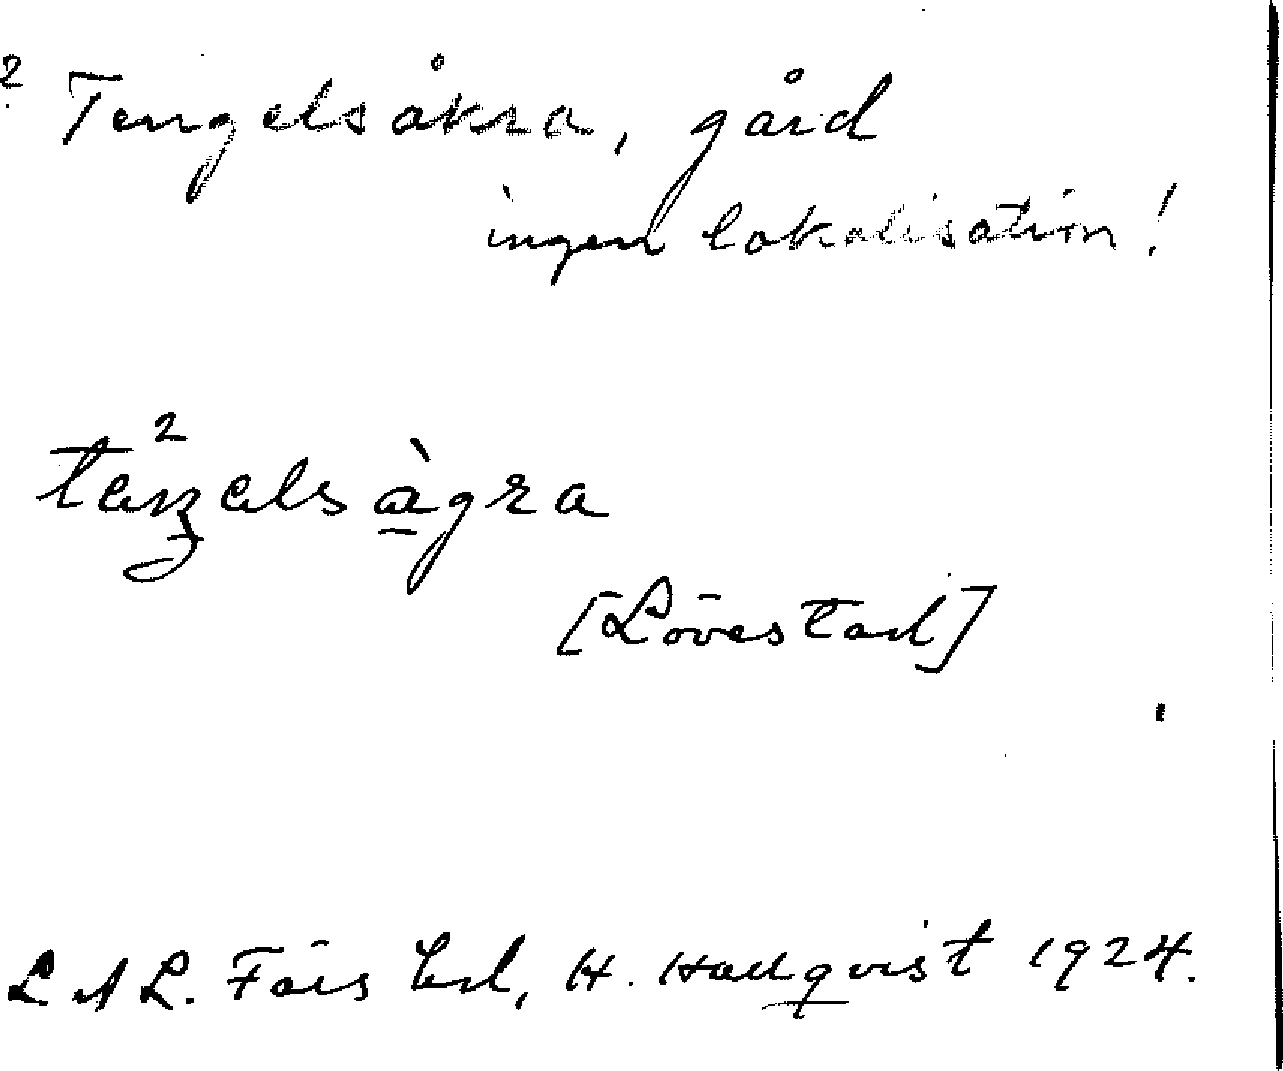 ? Tengelsåkra, gård
ingen lokalisation!
2
taŋəlsàgra
[Lövestad]
L A L. Färs hd, H. Hallqvist 1924.